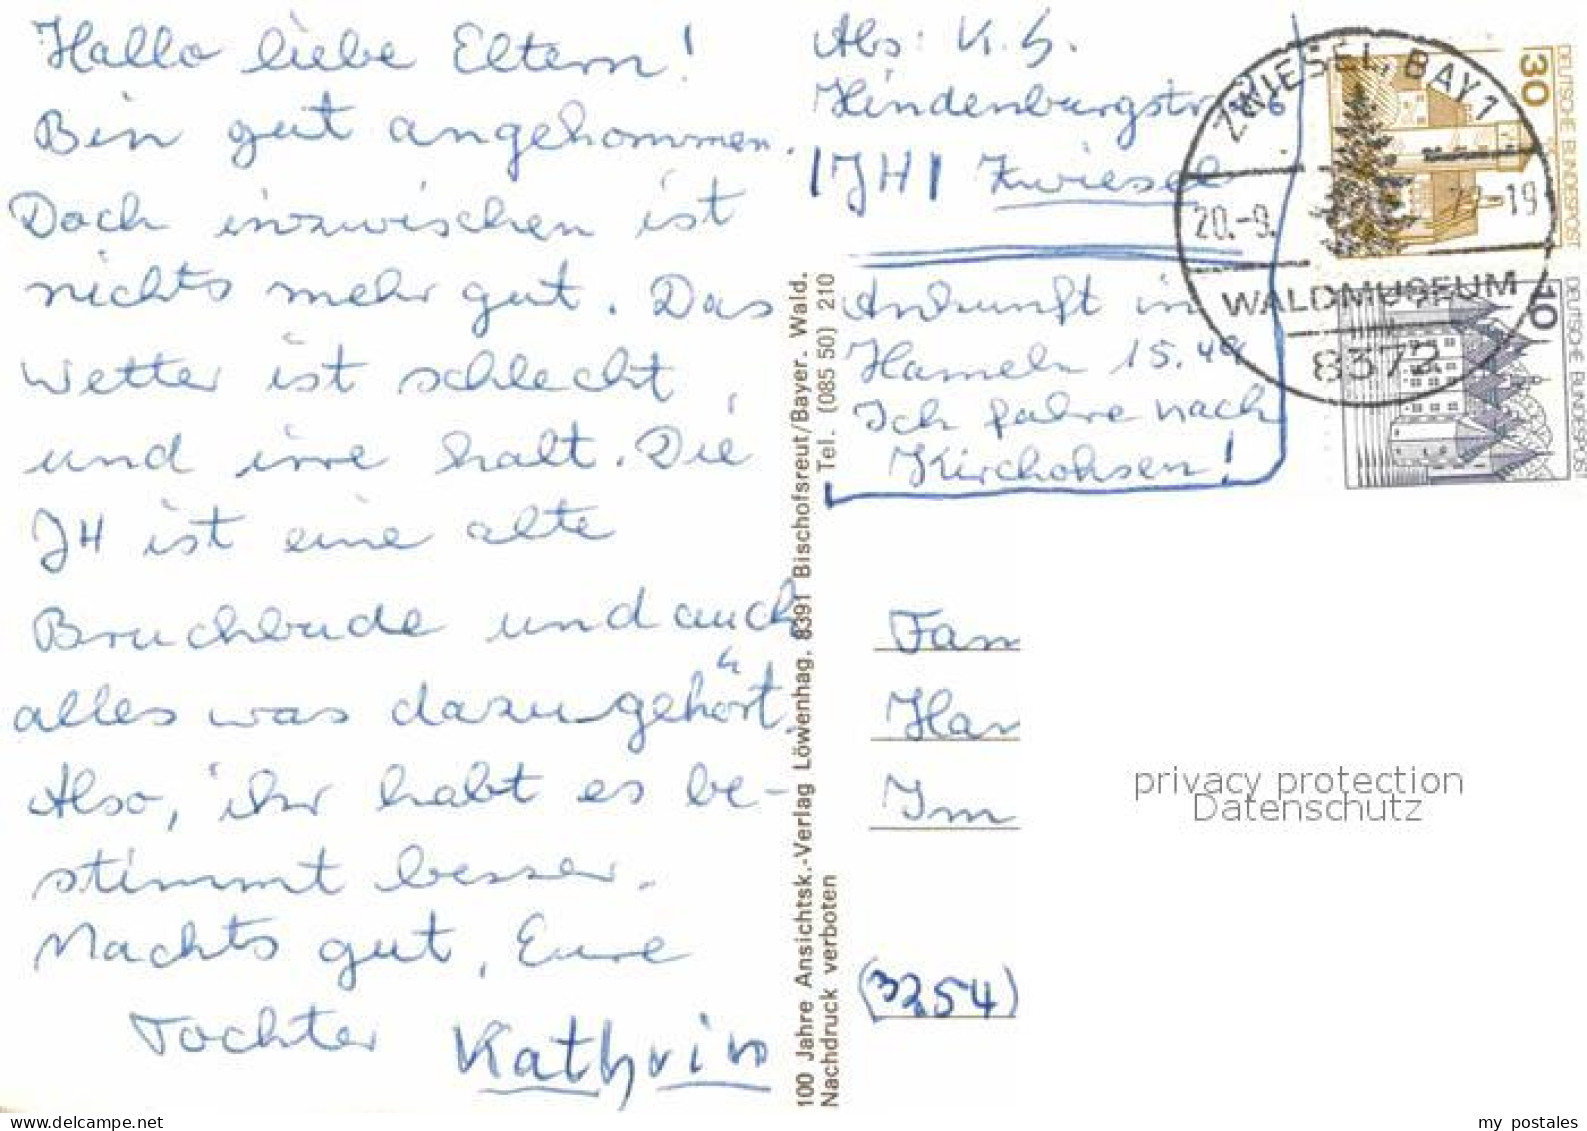 Hallo liebe Eltern!
Bin gut angekommen.
Doch inzwischen ist
nichts mehr gut. Das
Wetter ist schlecht
und irre kalt. Die
JH ist eine alte
Bruchbude und auch
alles was dazugehört.
Also, ihr habt es be-
stimmt besser.
Machts gut, Eure
Tochter Kathrin
100 Jahre Ansichtsk.-Verlag Löwenhag, 8391 Bischofsreut/Bayer. Wald.
Nachdruck verboten Tel. (085 50) 210
Abs: K. S.
Hindenburgstr. 26
JH Zwiesel
Ankunft in
Hameln 15.49
Ich fahre nach
Kirchohsen!
ZWIESEL, BAY 1
20.-9. -19
WALDMUSEUM
8372
30
DEUTSCHE BUNDESPOST
10
DEUTSCHE BUNDESPOST
Fam
Han
Im
(3254)
privacy protection
Datenschutz
my postales